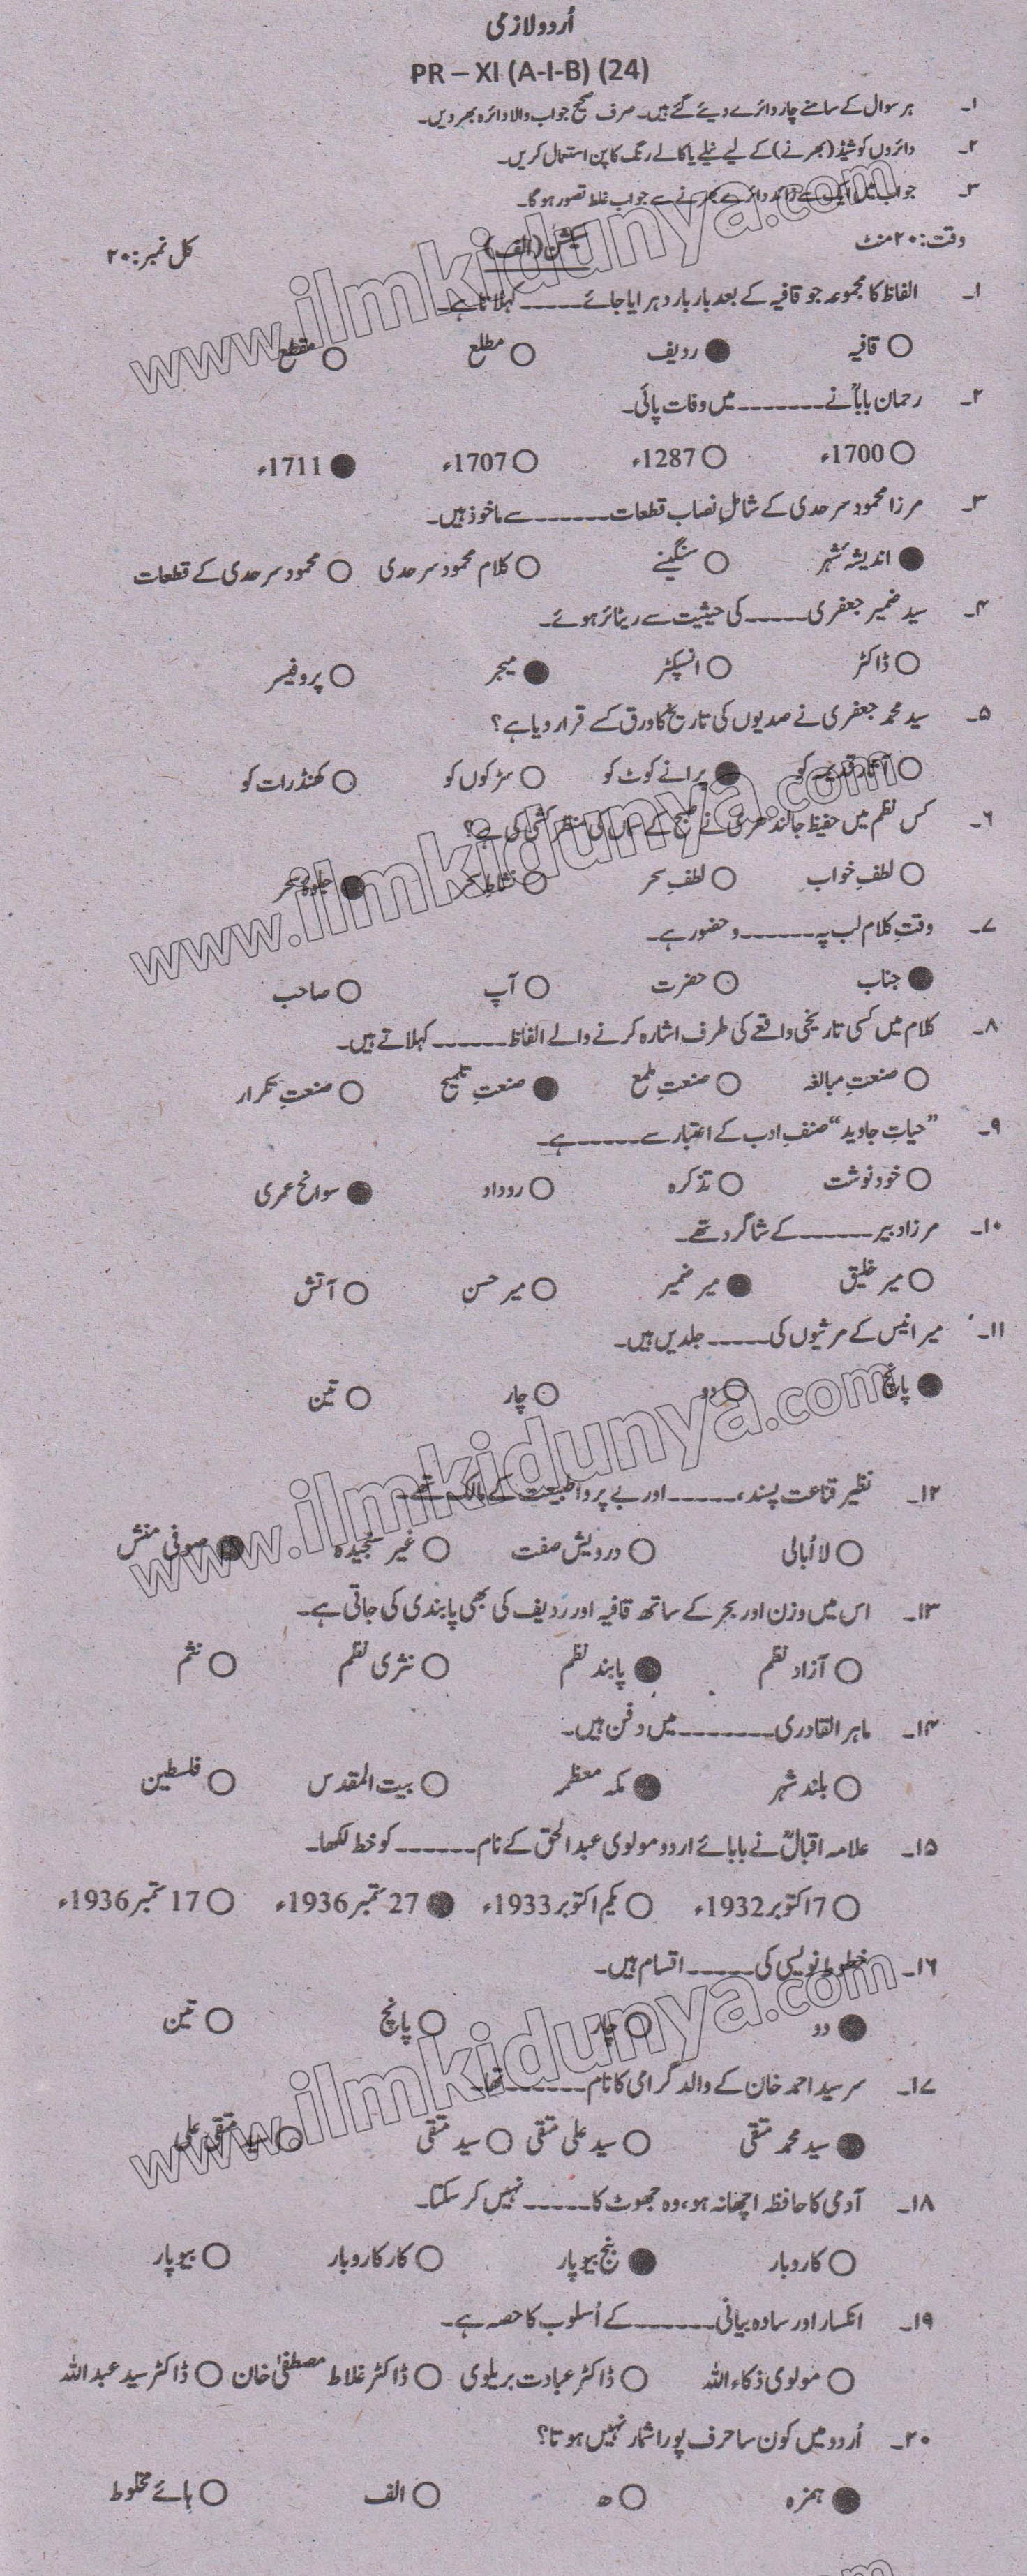 اُردو لازمی
PR – XI (A-I-B) (24)
۱۔ ہر سوال کے سامنے چار دائرے دیئے گئے ہیں۔ صرف صحیح جواب والا دائرہ بھر دیں۔
۲۔ دائروں کو شیڈ (بھرنے) کے لیے نیلے یا کالے رنگ کا پن استعمال کریں۔
۳۔ جواب میں ایک سے زائد دائرے بھرنے سے جواب غلط تصور ہوگا۔
وقت: ۲۰ منٹ سیکشن (الف) کل نمبر: ۲۰
۱۔ الفاظ کا مجموعہ جو قافیہ کے بعد بار بار دہرایا جائے ------ کہلاتا ہے۔
○ قافیہ ● ردیف ○ مطلع ○ مقطع
۲۔ رحمان باباؒ نے -------- میں وفات پائی۔
○ 1700ء ○ 1287ء ○ 1707ء ● 1711ء
۳۔ مرزا محمود سرحدی کے شاملِ نصاب قطعات ------- سے ماخوذ ہیں۔
● اندیشۂ شہر ○ سنگینے ○ کلام محمود سرحدی ○ محمود سرحدی کے قطعات
۴۔ سید ضمیر جعفری ------ کی حیثیت سے ریٹائر ہوئے۔
○ ڈاکٹر ○ انسپکٹر ● میجر ○ پروفیسر
۵۔ سید محمد جعفری نے صدیوں کی تاریخ کا ورق کسے قرار دیا ہے؟
○ آثار قدیمہ کو ● پرانے کوٹ کو ○ سڑکوں کو ○ کھنڈرات کو
۶۔ کس نظم میں حفیظ جالندھری نے صبح کے سماں کی منظر کشی کی ہے؟
○ لطفِ خواب ○ لطفِ سحر ○ نشاطِ سحر ● جلوۂ سحر
۷۔ وقتِ کلام لب پہ ------- و حضور ہے۔
● جناب ○ حضرت ○ آپ ○ صاحب
۸۔ کلام میں کسی تاریخی واقعے کی طرف اشارہ کرنے والے الفاظ ------- کہلاتے ہیں۔
○ صنعتِ مبالغہ ○ صنعتِ ملمع ● صنعتِ تلمیح ○ صنعتِ تکرار
۹۔ ”حیاتِ جاوید“ صنفِ ادب کے اعتبار سے ------ ہے۔
○ خود نوشت ○ تذکرہ ○ روداد ● سوانح عمری
۱۰۔ مرزا دبیر ------- کے شاگرد تھے۔
○ میر خلیق ● میر ضمیر ○ میر حسن ○ آتش
۱۱۔ میر انیس کے مرثیوں کی ------ جلدیں ہیں۔
● پانچ ○ دو ○ چار ○ تین
۱۲۔ نظیر قناعت پسند، ------ اور بے پروا طبیعت کے مالک تھے۔
○ لا اُبالی ○ درویش صفت ○ غیر سنجیدہ ● صوفی منش
۱۳۔ اس میں وزن اور بحر کے ساتھ قافیہ اور ردیف کی بھی پابندی کی جاتی ہے۔
○ آزاد نظم ● پابند نظم ○ نثری نظم ○ نثم
۱۴۔ ماہر القادری -------- میں دفن ہیں۔
○ بلند شہر ● مکہ معظمہ ○ بیت المقدس ○ فلسطین
۱۵۔ علامہ اقبالؒ نے بابائے اردو مولوی عبدالحق کے نام ------- کو خط لکھا۔
○ 7 اکتوبر 1932ء ○ یکم اکتوبر 1933ء ● 27 ستمبر 1936ء ○ 17 ستمبر 1936ء
۱۶۔ خطوط نویسی کی ------ اقسام ہیں۔
● دو ○ چار ○ پانچ ○ تین
۱۷۔ سر سید احمد خان کے والد گرامی کا نام ------- تھا۔
● سید محمد متقی ○ سید علی متقی ○ سید متقی ○ سید متقی علی
۱۸۔ آدمی کا حافظہ اچھا نہ ہو، وہ جھوٹ کا ------ نہیں کر سکتا۔
○ کاروبار ● بنج بیوپار ○ کار کاروبار ○ بیوپار
۱۹۔ انکسار اور سادہ بیانی ------- کے اُسلوب کا حصہ ہے۔
○ مولوی ذکاء اللہ ○ ڈاکٹر عبادت بریلوی ○ ڈاکٹر غلاط مصطفیٰ خان ○ ڈاکٹر سید عبداللہ
۲۰۔ اُردو میں کون سا حرف پورا شمار نہیں ہوتا؟
● ہمزہ ○ ھ ○ الف ○ ہائے مخلوط
www.ilmkidunya.com
www.ilmkidunya.com
www.ilmkidunya.com
www.ilmkidunya.com